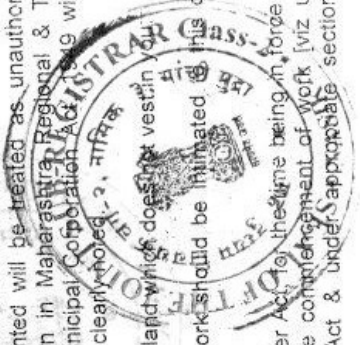 nted will be treated as unauthor
n in Maharashtra Regional & T
nicipal Corporation Act 1949 wi
clearly noted.
land which does not vest in you
ork should be intimated this
er Act for the time being in force
e commencement of work [viz u
Act & under appropriate section
SUB-REGISTRAR Class-2
OF THE JOINT
नासिक-२.